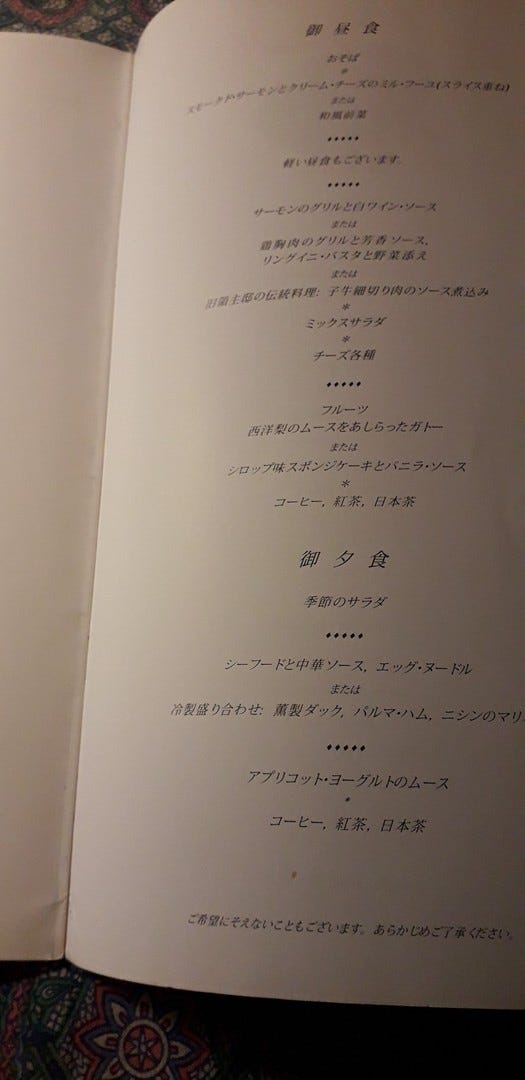 御昼食
おそば
*
スモークド・サーモンとクリーム・チーズのミル・フーユ(スライス重ね)
または
和風前菜
♦♦♦♦♦
軽い昼食もございます。
♦♦♦♦♦
サーモンのグリルと白ワイン・ソース
または
鶏胸肉のグリルと芳香ソース,
リングイニ・パスタと野菜添え
または
旧領主邸の伝統料理: 子牛細切り肉のソース煮込み
*
ミックスサラダ
*
チーズ各種
♦♦♦♦♦
フルーツ
西洋梨のムースをあしらったガトー
または
シロップ味スポンジケーキとバニラ・ソース
*
コーヒー, 紅茶, 日本茶
御夕食
季節のサラダ
♦♦♦♦♦
シーフードと中華ソース, エッグ・ヌードル
または
冷製盛り合わせ: 薫製ダック, パルマ・ハム, ニシンのマリ
♦♦♦♦♦
アプリコット・ヨーグルトのムース
*
コーヒー, 紅茶, 日本茶
ご希望にそえないこともございます。あらかじめご了承ください。